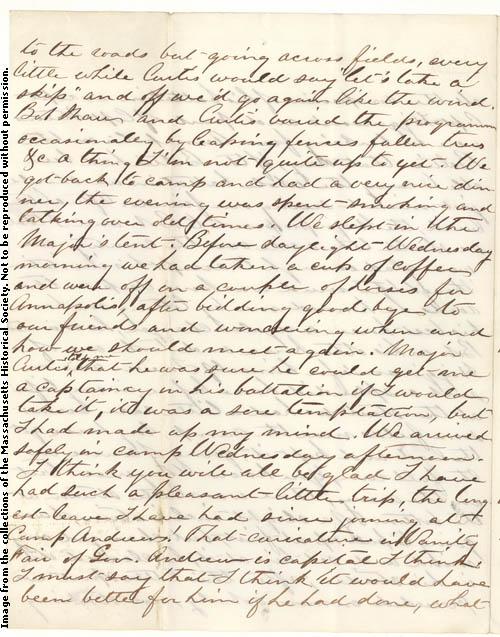 to the roads but going across fields, every
little while Curtis would say "let's take a
skip" and off we'd go again like the wind.
Bob Shaw and Curtis varied the programm
occasionaly by leaping fences fallen trees
&c a thing I'm not quite up to yet. We
got back to camp and had a very nice din
ner, the evening was spent smoking and
talking over old times. We slept in the
Major's tent. Before daylight Wednesday
morning we had taken a cup of coffee
and were off on a couple of horses for
Annapolis, after bidding good bye to
our friends and wondering when and
how we should meet again. Major
Curtis told me that he was sure he could get me
a captaincy in his battalion if I would
take it, it was a sore temptation, but
I had made up my mind. We arrived
safely in camp Wednesday afternoon.
I think you will all be glad I have
had such a pleasant little trip, the long
est leave I have had since joining at
Camp Andrew. That caricature in Vanity
Fair of Gov. Andrew is capital I think.
I must say that I think it would have
been better for him if he had done, what
Image from the collections of the Massachusetts Historical Society. Not to be reproduced without permission.